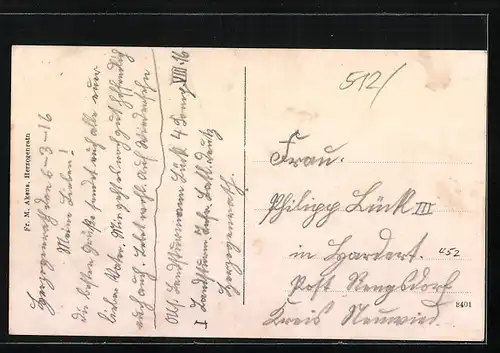 Herzogenrath den 6-3-16
Meine Lieben!
Die besten Grüße sendet euch alle euer
lieber Vater. Mir geht es noch gut, hoffentlich
euch auch. Lebet wohl. Auf Wiedersehn
Abs. Landsturmmann Lück 4 Comp VIII.16
I Landsturm. Inf. Batl. Deutz
Herzogenrath
Fr. M. Akens, Herzogenrath
512/
Frau.
Philipp Lück III
in Hardert.
452
Post Rengsdorf
Kreis Neuwied.
8401